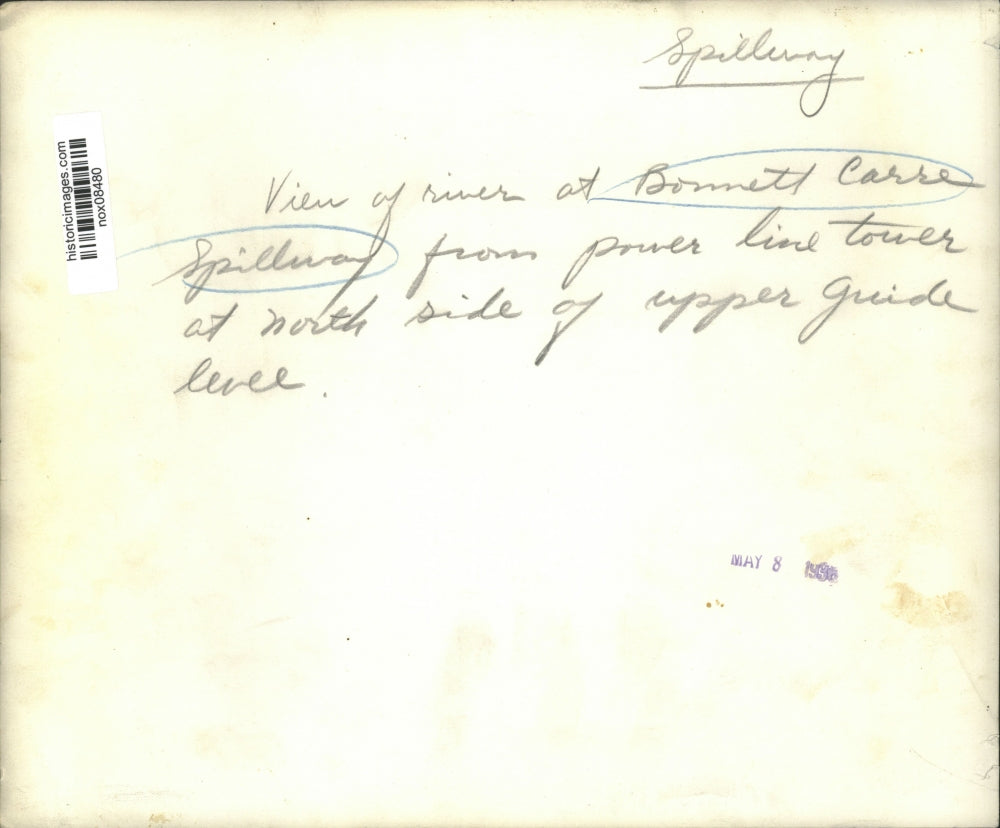 Spillway
historicimages.com
nox08480
View of river at Bonnett Carre
Spillway from power line tower
at north side of upper Guide
levee.
MAY 8